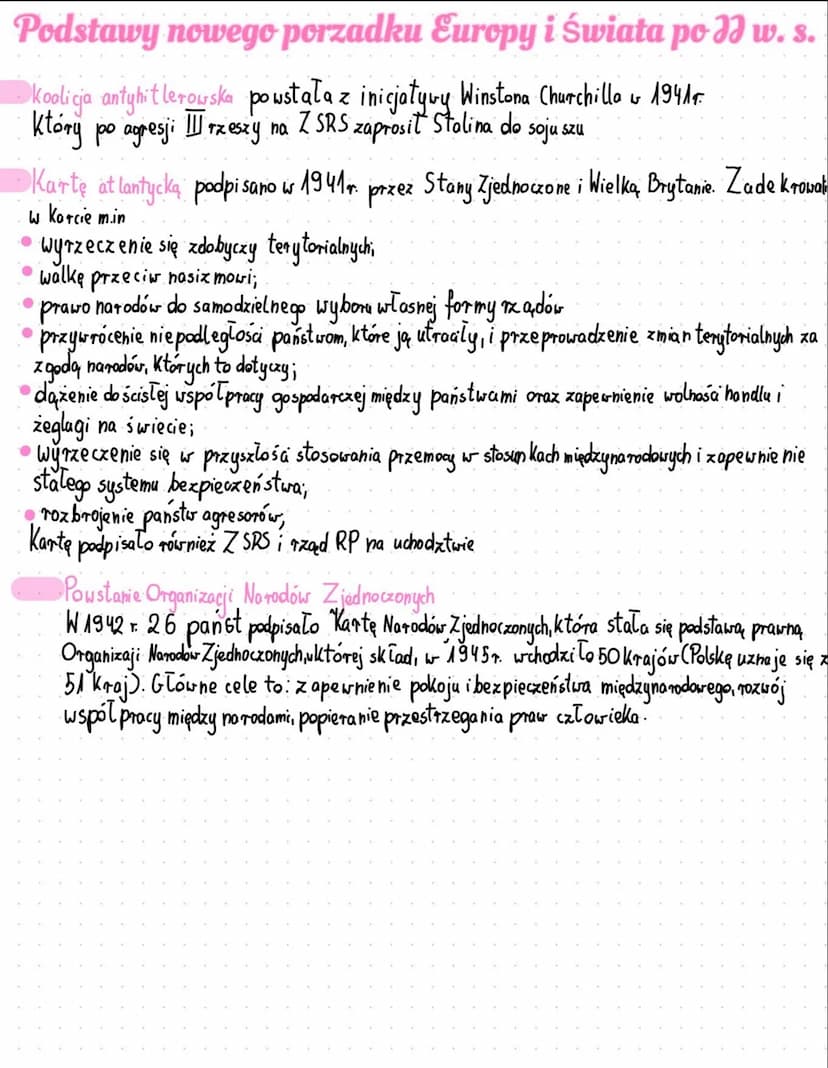 Podstawy nowego porzadku Europy i Świata po II w. s.
Koalicja antyhitlerowska powstała z inicjatywy Winstona Churchilla w 1941r.
Który po agresji III rzeszy na ZSRS zaprosił Stalina do sojuszu
Kartę atlantycką podpisano w 1941r. przez Stany Zjednoczone i Wielką Brytanie. Zadekrowal
w Karcie m.in
• wyrzeczenie się zdobyczy terytorialnych;
• walkę przeciw nasizmowi;
• prawo narodów do samodzielnego wyboru własnej formy rządów
• przywrócenie niepodległości państwom, które ją utraciły, i przeprowadzenie zmian terytorialnych za
zgodą narodów, których to dotyczy;
• dążenie do ścisłej współpracy gospodarczej między państwami oraz zapewnienie wolności handlu i
żeglugi na świecie;
• wyrzeczenie się w przyszłości stosowania przemocy w stosunkach międzynarodowych i zapewnienie
stałego systemu bezpieczeństwa;
• rozbrojenie państw agresorów,
Kartę podpisało również ZSRS i rząd RP na uchodztwie
Powstanie Organizacji Narodów Zjednoczonych
W 1942 r. 26 panśt podpisało Kartę Narodów Zjednoczonych, która stała się podstawą prawną
Organizaji Narodów Zjednoczonych, w której skład, w 1945r. wchodziło 50 krajów (Polskę uznaje się z
51 kraj). Główne cele to: zapewnienie pokoju i bezpieczeństwa międzynarodowego, rozwój
współpracy między narodami, popieranie przestrzegania praw człowieka.